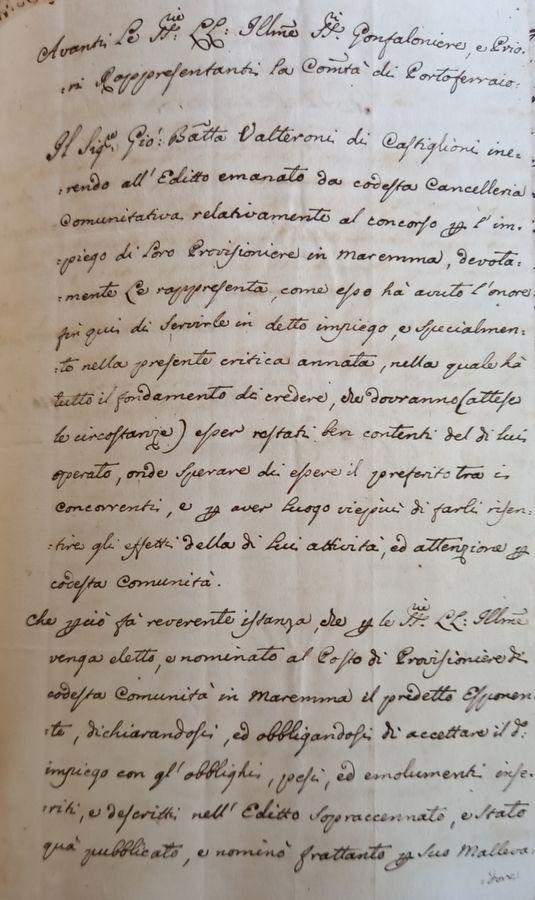 Avanti Le SS:rie LL: Illme SS:ri Gonfaloniere, e Prio-
:ri Rappresentanti la Comtà di Portoferraio.
Il Sigre Gio: Batta Valteroni di Castiglioni ine-
:rendo all' Editto emanato da codesta Cancelleria
Comunitativa relativamente al concorso p l' im-
:piego di loro Provisioniere in Maremma, devota-
:mente Le rappresenta, come esso hà avuto l'onore
fin qui di servirle in detto impiego, e specialmen-
:te nella presente critica annata, nella quale hà
tutto il fondamento di credere, che dovranno (attese
le circostanze) esser restati ben contenti del di lui
operato, onde sperare di essere il preferito tra i
concorrenti, e p aver luogo viepiù di farli risen-
:tire gli effetti della di Lui attività, ed attenzione p
codesta Comunità.
Che p ciò fà reverente istanza, che p le SS:rie LL: Illme
venga eletto, e nominato al Posto di Provisioniere di
codesta Comunità in Maremma il predetto Esponen-
:te, dichiarandosi, ed obbligandosi di accettare il d:
impiego con gl' obblighi, pesi, ed emolumenti inse-
:riti, e descritti nell' Editto sopraccennato, e stato
quà pubblicato, e nominò frattanto p suo Malleva-
:dore